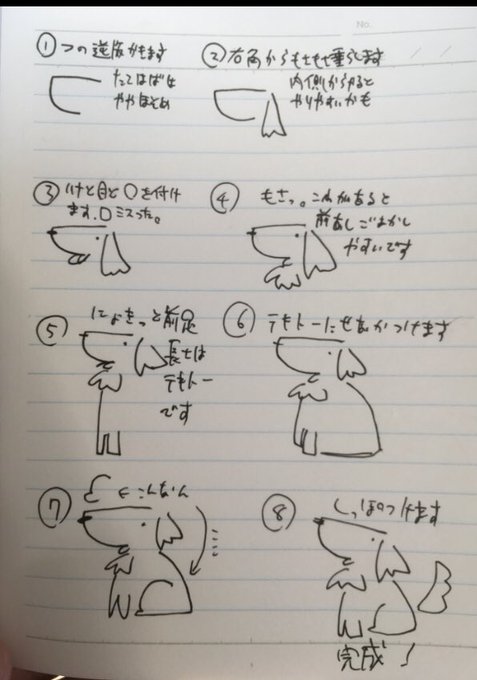 No.
① つの逆版かきます
たてはばは
ややほそめ
② 右角からもさもさ垂らします
内側からやると
やりやすいかも
③ けと目と口を付け
ます。口ミスった。
④ もさっ。これがあると
前あしごまかし
やすいです
⑤ にょきっと前足
長さは
テキトー
です
⑥ テキトーにせなかつけます
⑦ ← こんなん
⑧ しっぽつけます
完成!